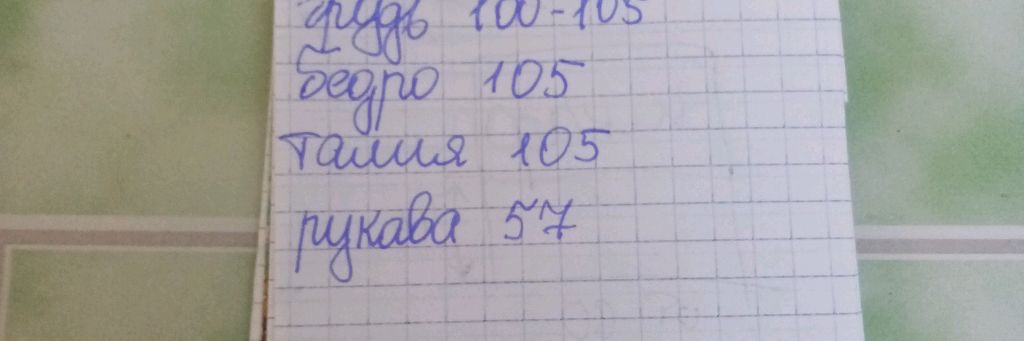 грудь 100-105
бедро 105
талия 105
рукава 57